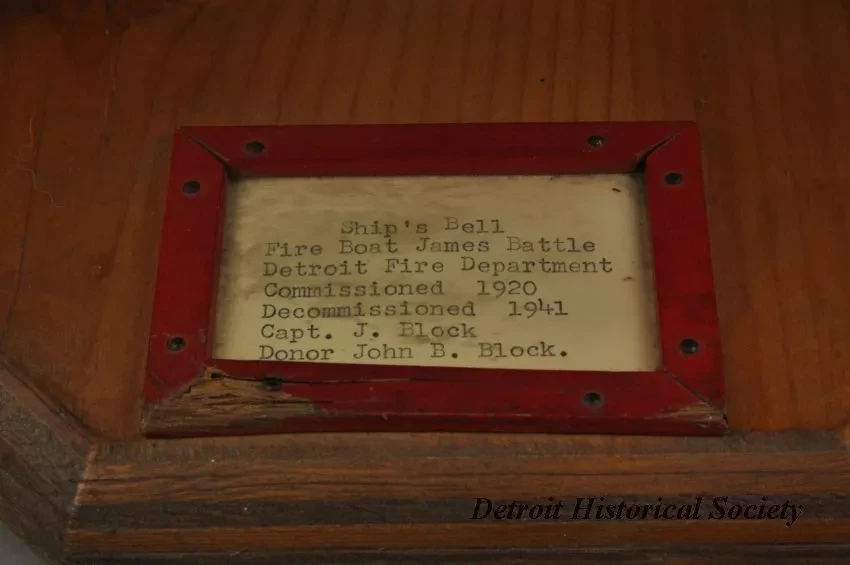 Ship's Bell
Fire Boat James Battle
Detroit Fire Department
Commissioned 1920
Decommissioned 1941
Capt. J. Block
Donor John B. Block.
Detroit Historical Society